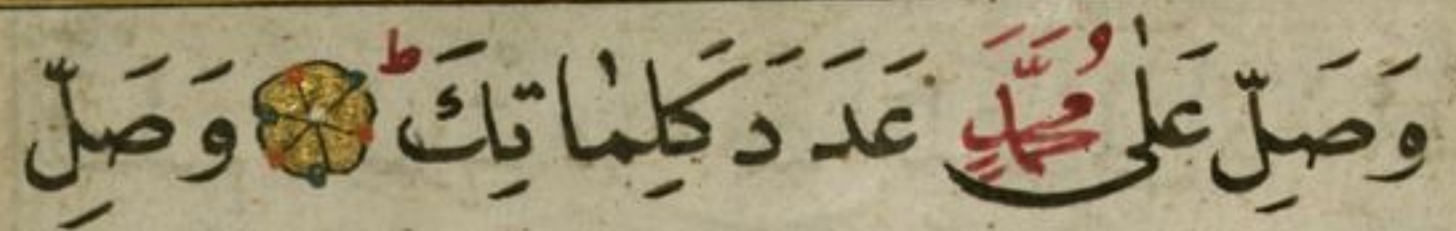 وَصَلِّ عَلٰى مُحَمَّدٍ عَدَدَ دَ كَلِمٰاتِكَ ط وَصَلِّ